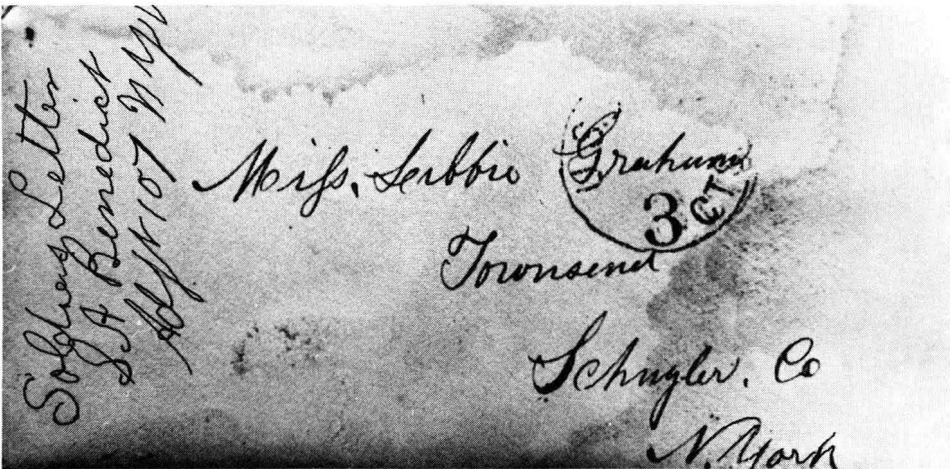 Soldiers Letter
S A Benedict
Adjt 107 NYV
Miss. Libbie Graham
3 CT
Townsend
Schuyler. Co
N. York